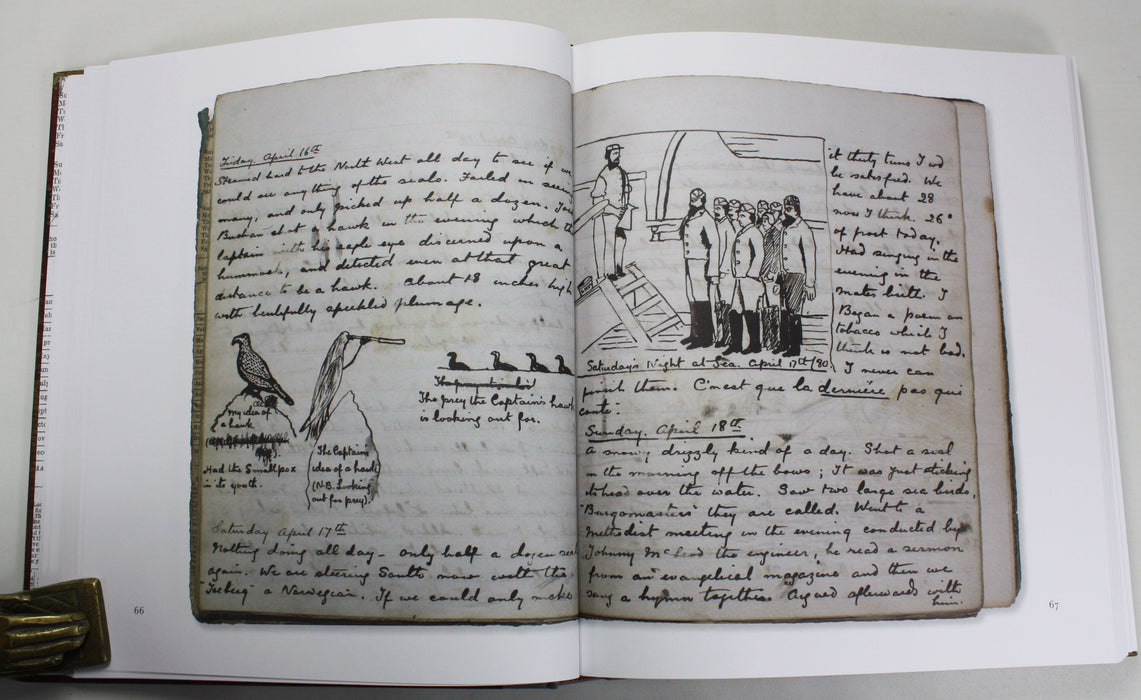 Friday. April 16th
Steamed hard to the North West all day to see if we
could see anything of the seals. Failed in seeing
many, and only picked up half a dozen.
Buchan shot a hawk in the evening which the
Captain with his eagle eye discerned upon a
hummock, and detected even at that great
distance to be a hawk. About 18 inches high
with beautifully speckled plumage.
My idea of
a hawk
Had the Smallpox
in its youth.
The Captain's
idea of a hawk
(N.B. Looking
out for prey).
The prey the Captain's hawk
is looking out for.
Saturday April 17th
Nothing doing all day - only half a dozen
again. We are steering South now with the
"Iceberg" a Norwegian. If we could only make
66
it thirty tuns I wd
be satisfied. We
have about 28
now I think. 26°
of frost today.
Had singing in the
evening in the
mates birth. I
Began a poem on
tobacco which I
think is not bad.
I never can
Saturday's Night at Sea. April 17th/80.
finish them. C'mest que la dernière pas qui
coute".
Sunday. April 18th
A snowy drizzly kind of a day. Shot a seal
in the morning off the bows; It was just sticking
its head over the water. Saw two large sea birds,
"Burgomasters" they are called. Went to a
Methodist meeting in the evening conducted by
Johnny McLeod the engineer, he read a sermon
from an evangelical magazine and then we
sang a hymn together. Argued afterwards with
him.
67